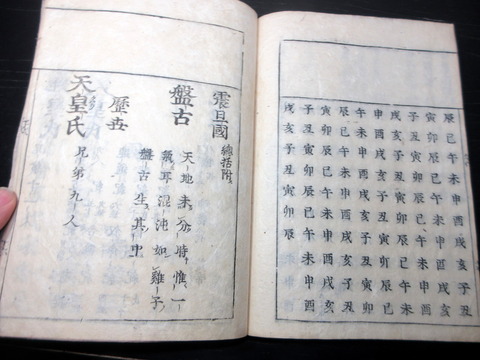 辰巳午未申酉戌亥子丑
寅卯辰巳午未申酉戌亥
子丑寅卯辰巳午未申酉
戌亥子丑寅卯辰巳午未
申酉戌亥子丑寅卯辰巳
午未申酉戌亥子丑寅卯
辰巳午未申酉戌亥子丑
寅卯辰巳午未申酉戌亥
子丑寅卯辰巳午未申酉
戌亥子丑寅卯辰
震旦國 總括附
盤古 天地未分時惟一
氣耳混沌如雞子
盤古生其中
歷世
天皇氏 兄弟九人